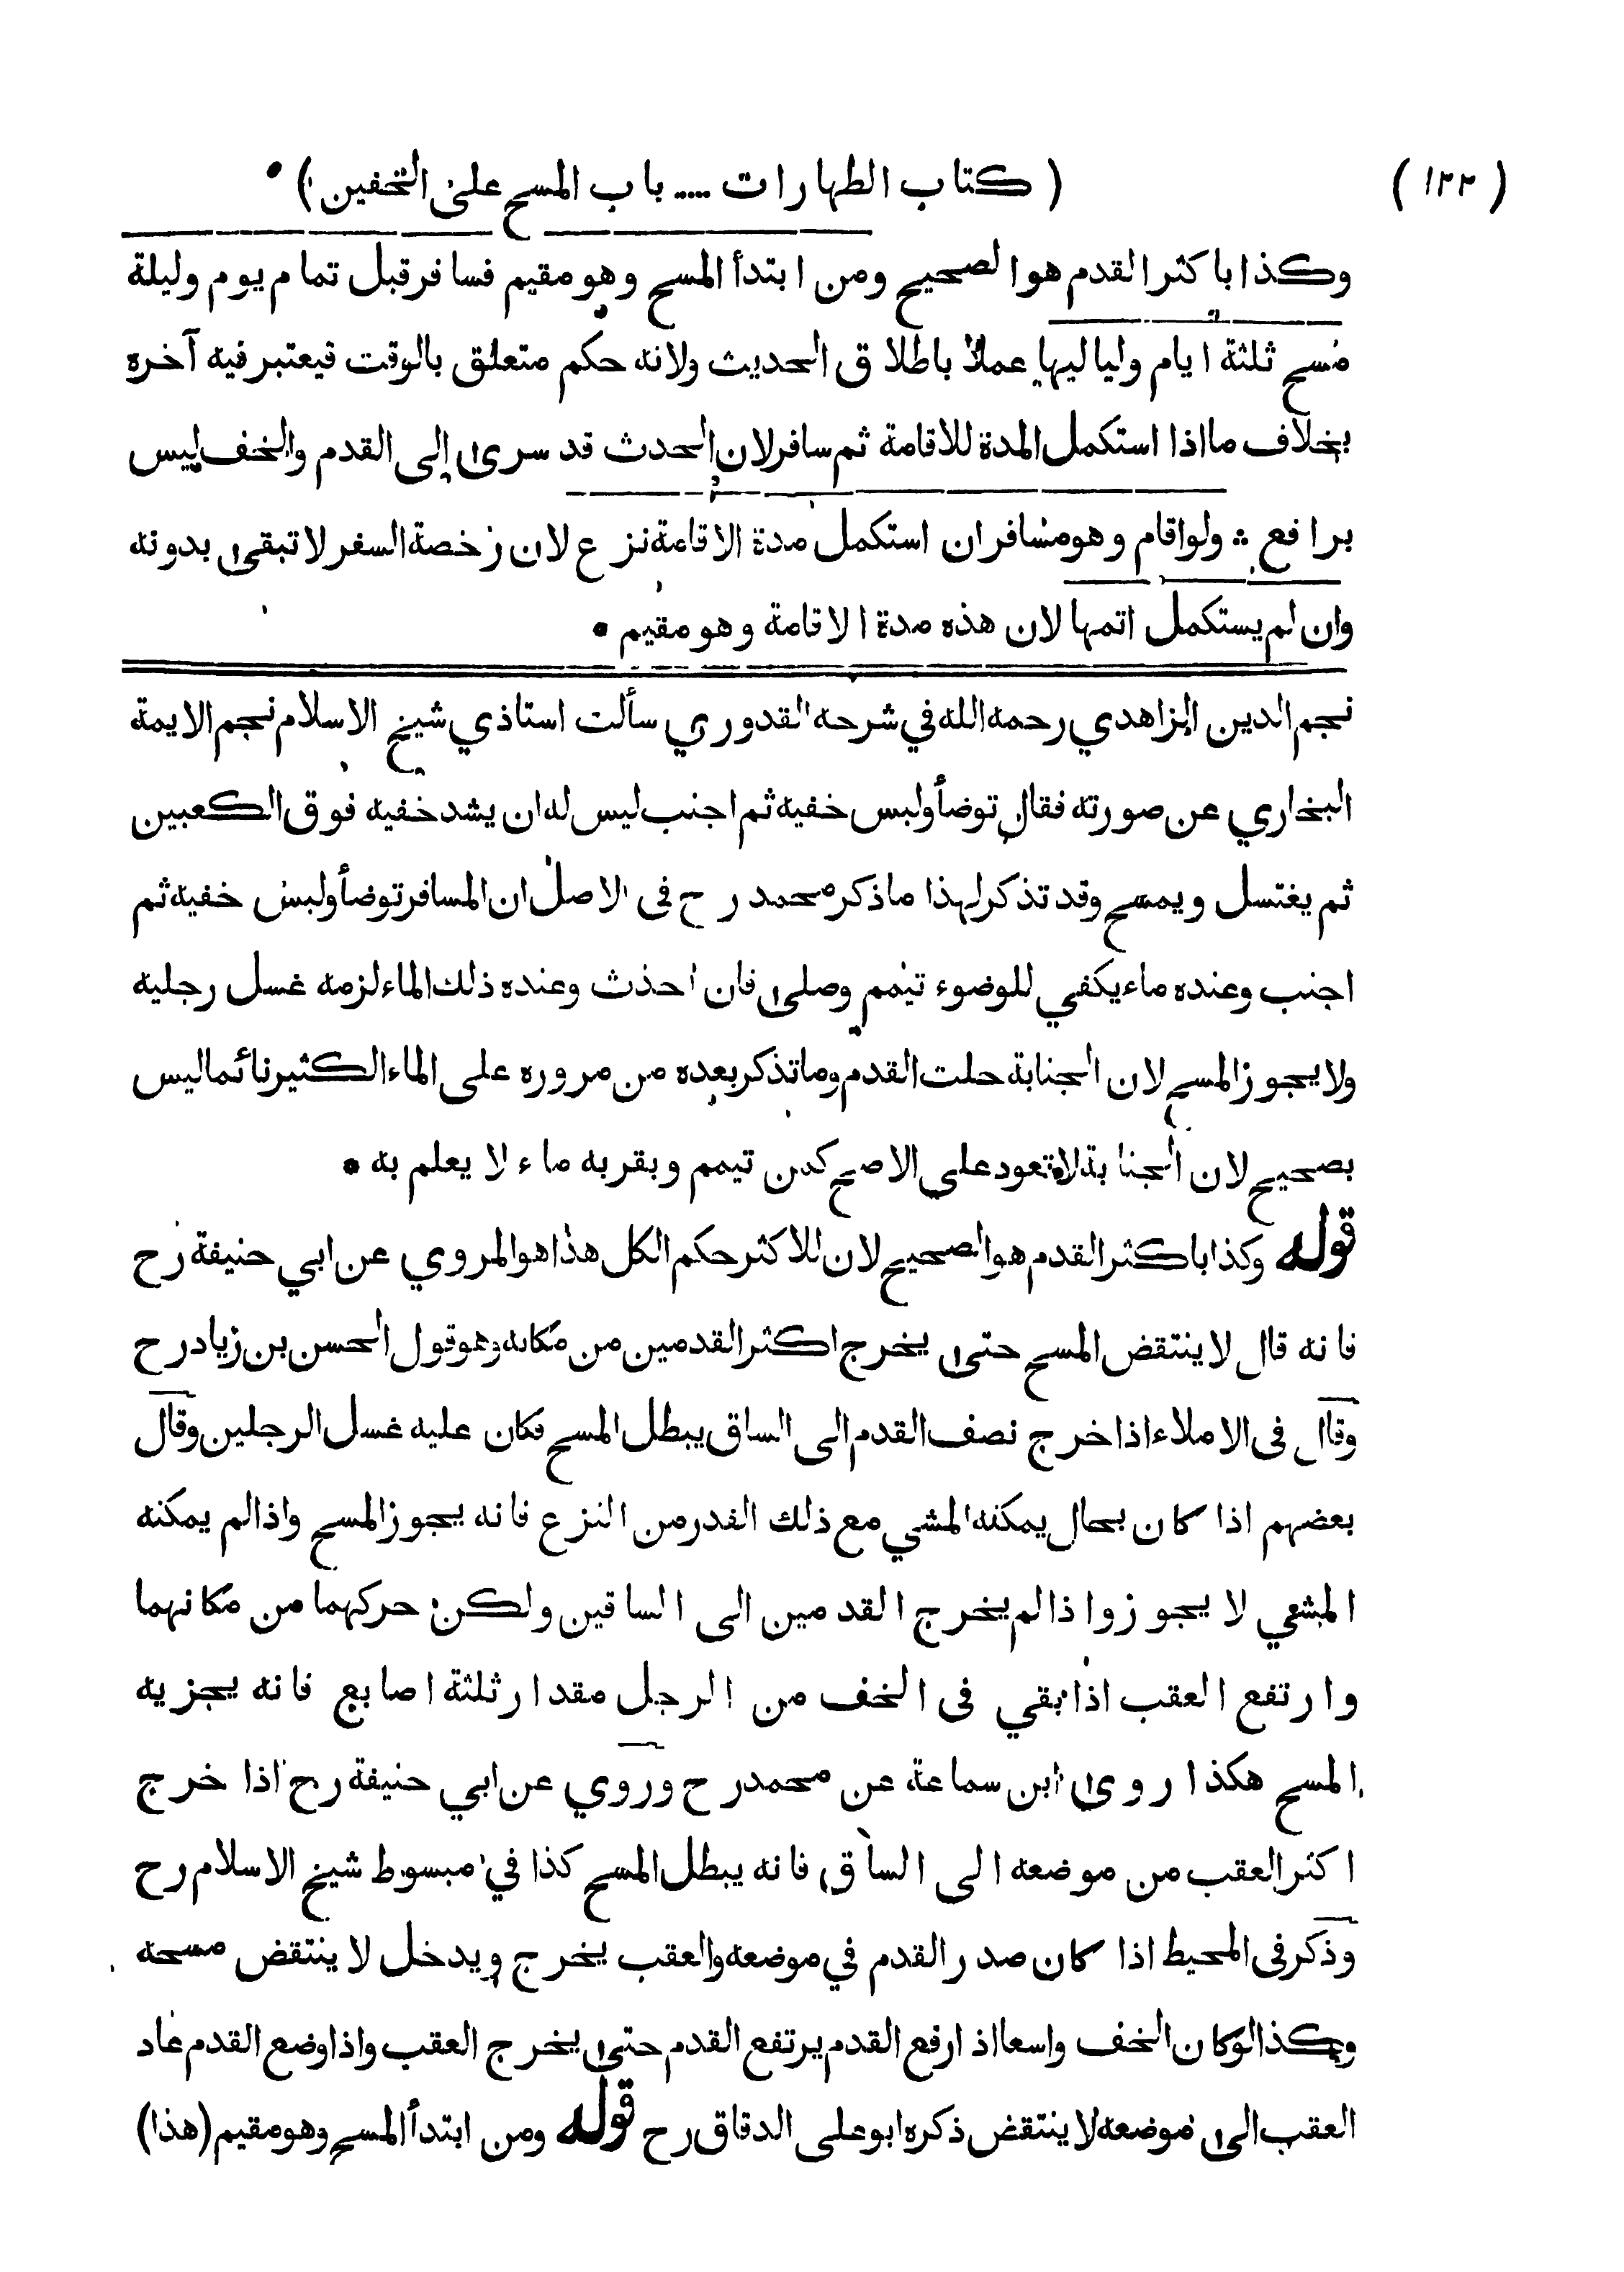 ( ١٢٢ )
( كتاب الطهارات .... باب المسح على الخفين )
وكذا باكثر القدم هو الصحيح ومن ابتدأ المسح وهو مقيم فسافر قبل تمام يوم وليلة
مسح ثلثة ايام ولياليها عملا باطلاق الحديث ولانه حكم متعلق بالوقت فيعتبر فيه آخره
بخلاف ما اذا استكمل المدة للاقامة ثم سافر لان الحدث قد سرى الى القدم والخف ليس
برافع ؞ ولو اقام وهو مسافر ان استكمل مدة الاقامة نزع لان رخصة السفر لا تبقى بدونه
وان لم يستكمل اتمها لان هذه مدة الاقامة وهو مقيم •
نجم الدين الزاهدي رحمه الله في شرحه القدوري سألت استاذي شيخ الاسلام نجم الايمة
البخاري عن صورته فقال توضأ ولبس خفيه ثم اجنب ليس له ان يشد خفيه فوق الكعبين
ثم يغتسل ويمسح وقد تذكر لهذا ما ذكر محمد رح فى الاصل ان المسافر توضأ ولبس خفيه ثم
اجنب وعنده ماء يكفي للوضوء تيمم وصلى فان احدث وعنده ذلك الماء لزمه غسل رجليه
ولا يجوز المسح لان الجنابة حلت القدم وما تذكر بعده من مروره على الماء الكثير نائما ليس
بصحيح لان الجنابة لا تعود على الاصح كمن تيمم وبقربه ماء لا يعلم به •
قوله وكذا باكثر القدم هو الصحيح لان للاكثر حكم الكل هذا هو المروي عن ابي حنيفة رح
فانه قال لا ينتقض المسح حتى يخرج اكثر القدمين من مكانه وهو قول الحسن بن زياد رح
وقال فى الاملاء اذا خرج نصف القدم الى الساق يبطل المسح فكان عليه غسل الرجلين وقال
بعضهم اذا كان بحال يمكنه المشي مع ذلك القدر من النزع فانه يجوز المسح واذا لم يمكنه
المشي لا يجوز واذا لم يخرج القدمين الى الساقين ولكن حركهما من مكانهما
وارتفع العقب اذا بقي فى الخف من الرجل مقدار ثلثة اصابع فانه يجزيه
المسح هكذا روى ابن سماعة عن محمد رح وروي عن ابي حنيفة رح اذا خرج
اكثر العقب من موضعه الى الساق فانه يبطل المسح كذا في مبسوط شيخ الاسلام رح
وذكر فى المحيط اذا كان صدر القدم في موضعه والعقب يخرج ويدخل لا ينتقض مسحه
وكذا لو كان الخف واسعا اذ ارفع القدم يرتفع القدم حتى يخرج العقب واذا وضع القدم عاد
العقب الى موضعه لا ينتقض ذكره ابو على الدقاق رح قوله ومن ابتدأ المسح وهو مقيم (هذا)